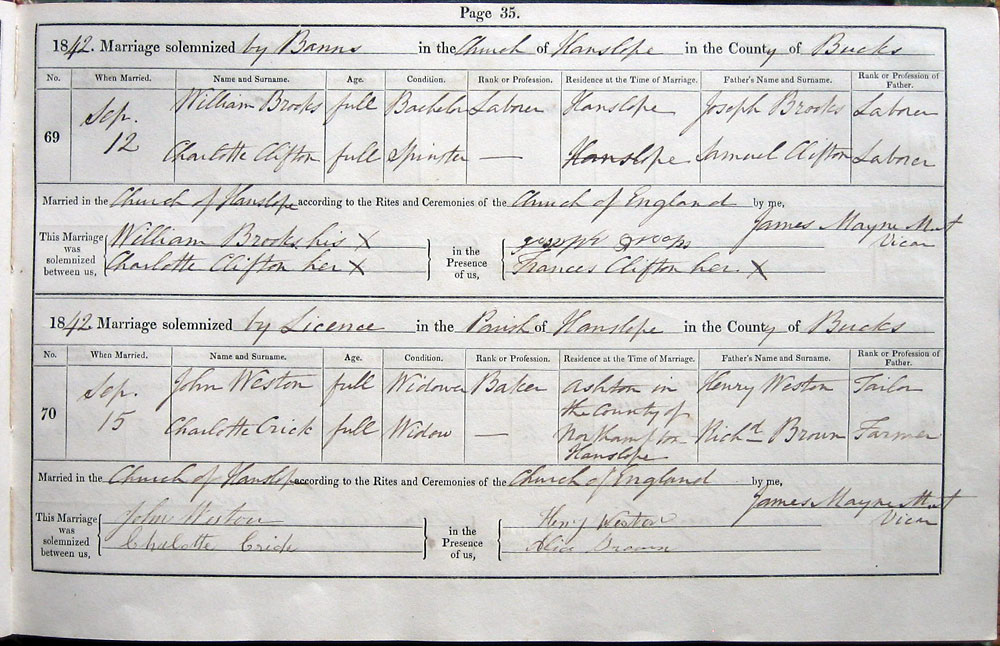 Page 35.
1842. Marriage solemnized by Banns in the Church of Hanslope in the County of Bucks
No. When Married. Name and Surname. Age. Condition. Rank or Profession. Residence at the Time of Marriage. Father's Name and Surname. Rank or Profession of Father.
69 Sep. 12 William Brooks full Bachelor Laborer Hanslope Joseph Brooks Laborer
Charlotte Clifton full Spinster — Hanslope Samuel Clifton Laborer
Married in the Church of Hanslope according to the Rites and Ceremonies of the Church of England by me,
James Mayne
Vicar
This Marriage was solemnized between us, William Brooks his X in the Presence of us, Joseph
Charlotte Clifton her X Frances Clifton her X
1842. Marriage solemnized by Licence in the Parish of Hanslope in the County of Bucks
No. When Married. Name and Surname. Age. Condition. Rank or Profession. Residence at the Time of Marriage. Father's Name and Surname. Rank or Profession of Father.
70 Sep. 15 John Weston full Widower Baker Ashton in the County of Northampton Henry Weston Tailor
Charlotte Crick full Widow — Hanslope Richd Brown Farmer
Married in the Church of Hanslope according to the Rites and Ceremonies of the Church of England by me,
James Mayne
Vicar
This Marriage was solemnized between us, John Weston in the Presence of us, Henry Weston
Charlotte Crick Alice Brown